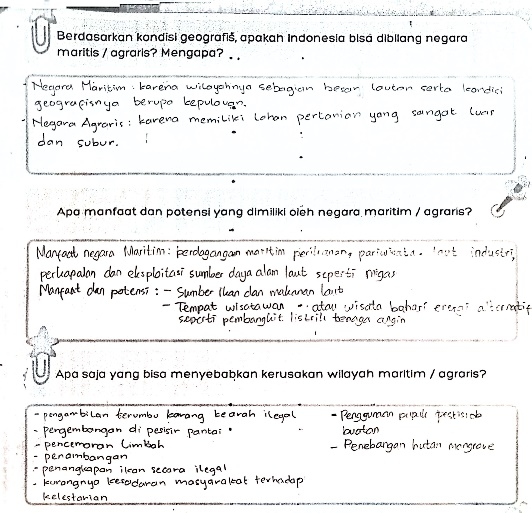 Berdasarkan kondisi geografis, apakah Indonesia bisa dibilang negara
maritis / agraris? Mengapa?
Negara Maritim : karena wilayahnya sebagian besar lautan serta kondisi
geografisnya berupa kepulauan.
Negara Agraris : karena memiliki lahan pertanian yang sangat luas
dan subur.
Apa manfaat dan potensi yang dimiliki oleh negara maritim / agraris?
Manfaat negara Maritim : perdagangan maritim perikanan, pariwisata laut industri,
perkapalan dan eksploitasi sumber daya alam laut seperti migas
Manfaat dan potensi : - Sumber ikan dan makanan laut
- Tempat wisatawan atau wisata bahari energi alternatif
seperti pembangkit listrik tenaga angin
Apa saja yang bisa menyebabkan kerusakan wilayah maritim / agraris?
- pengambilan terumbu karang kearah ilegal
- pengembangan di pesisir pantai
- pencemaran limbah
- penambangan
- penangkapan ikan secara ilegal
- kurangnya kesadaran masyarakat terhadap
kelestarian
- Penggunaan pupuk pestisida
buatan
- Penebangan hutan mangrove